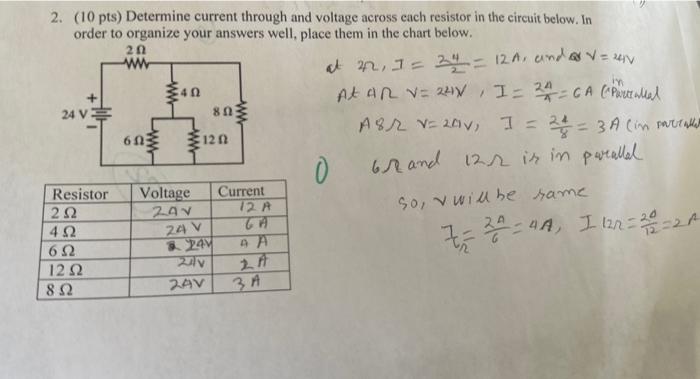 2. (10 pts) Determine current through and voltage across each resistor in the circuit below. In
order to organize your answers well, place them in the chart below.
2 Ω
4 Ω
8 Ω
+
24 V
−
6 Ω
12 Ω
at 2Ω, I = 24/2 = 12A, and V = 24V
At 4Ω V = 24V, I = 24/4 = 6A (in Parallel
A 8Ω V = 24V, I = 24/8 = 3A (in parallel
0
6Ω and 12Ω is in parallel
so, V will be same
I = 24/6 = 4A, I 12Ω = 24/12 = 2A
Resistor Voltage Current
2 Ω 24V 12 A
4 Ω 24 V 6 A
6 Ω 24V 4 A
12 Ω 24V 2 A
8 Ω 24V 3 A